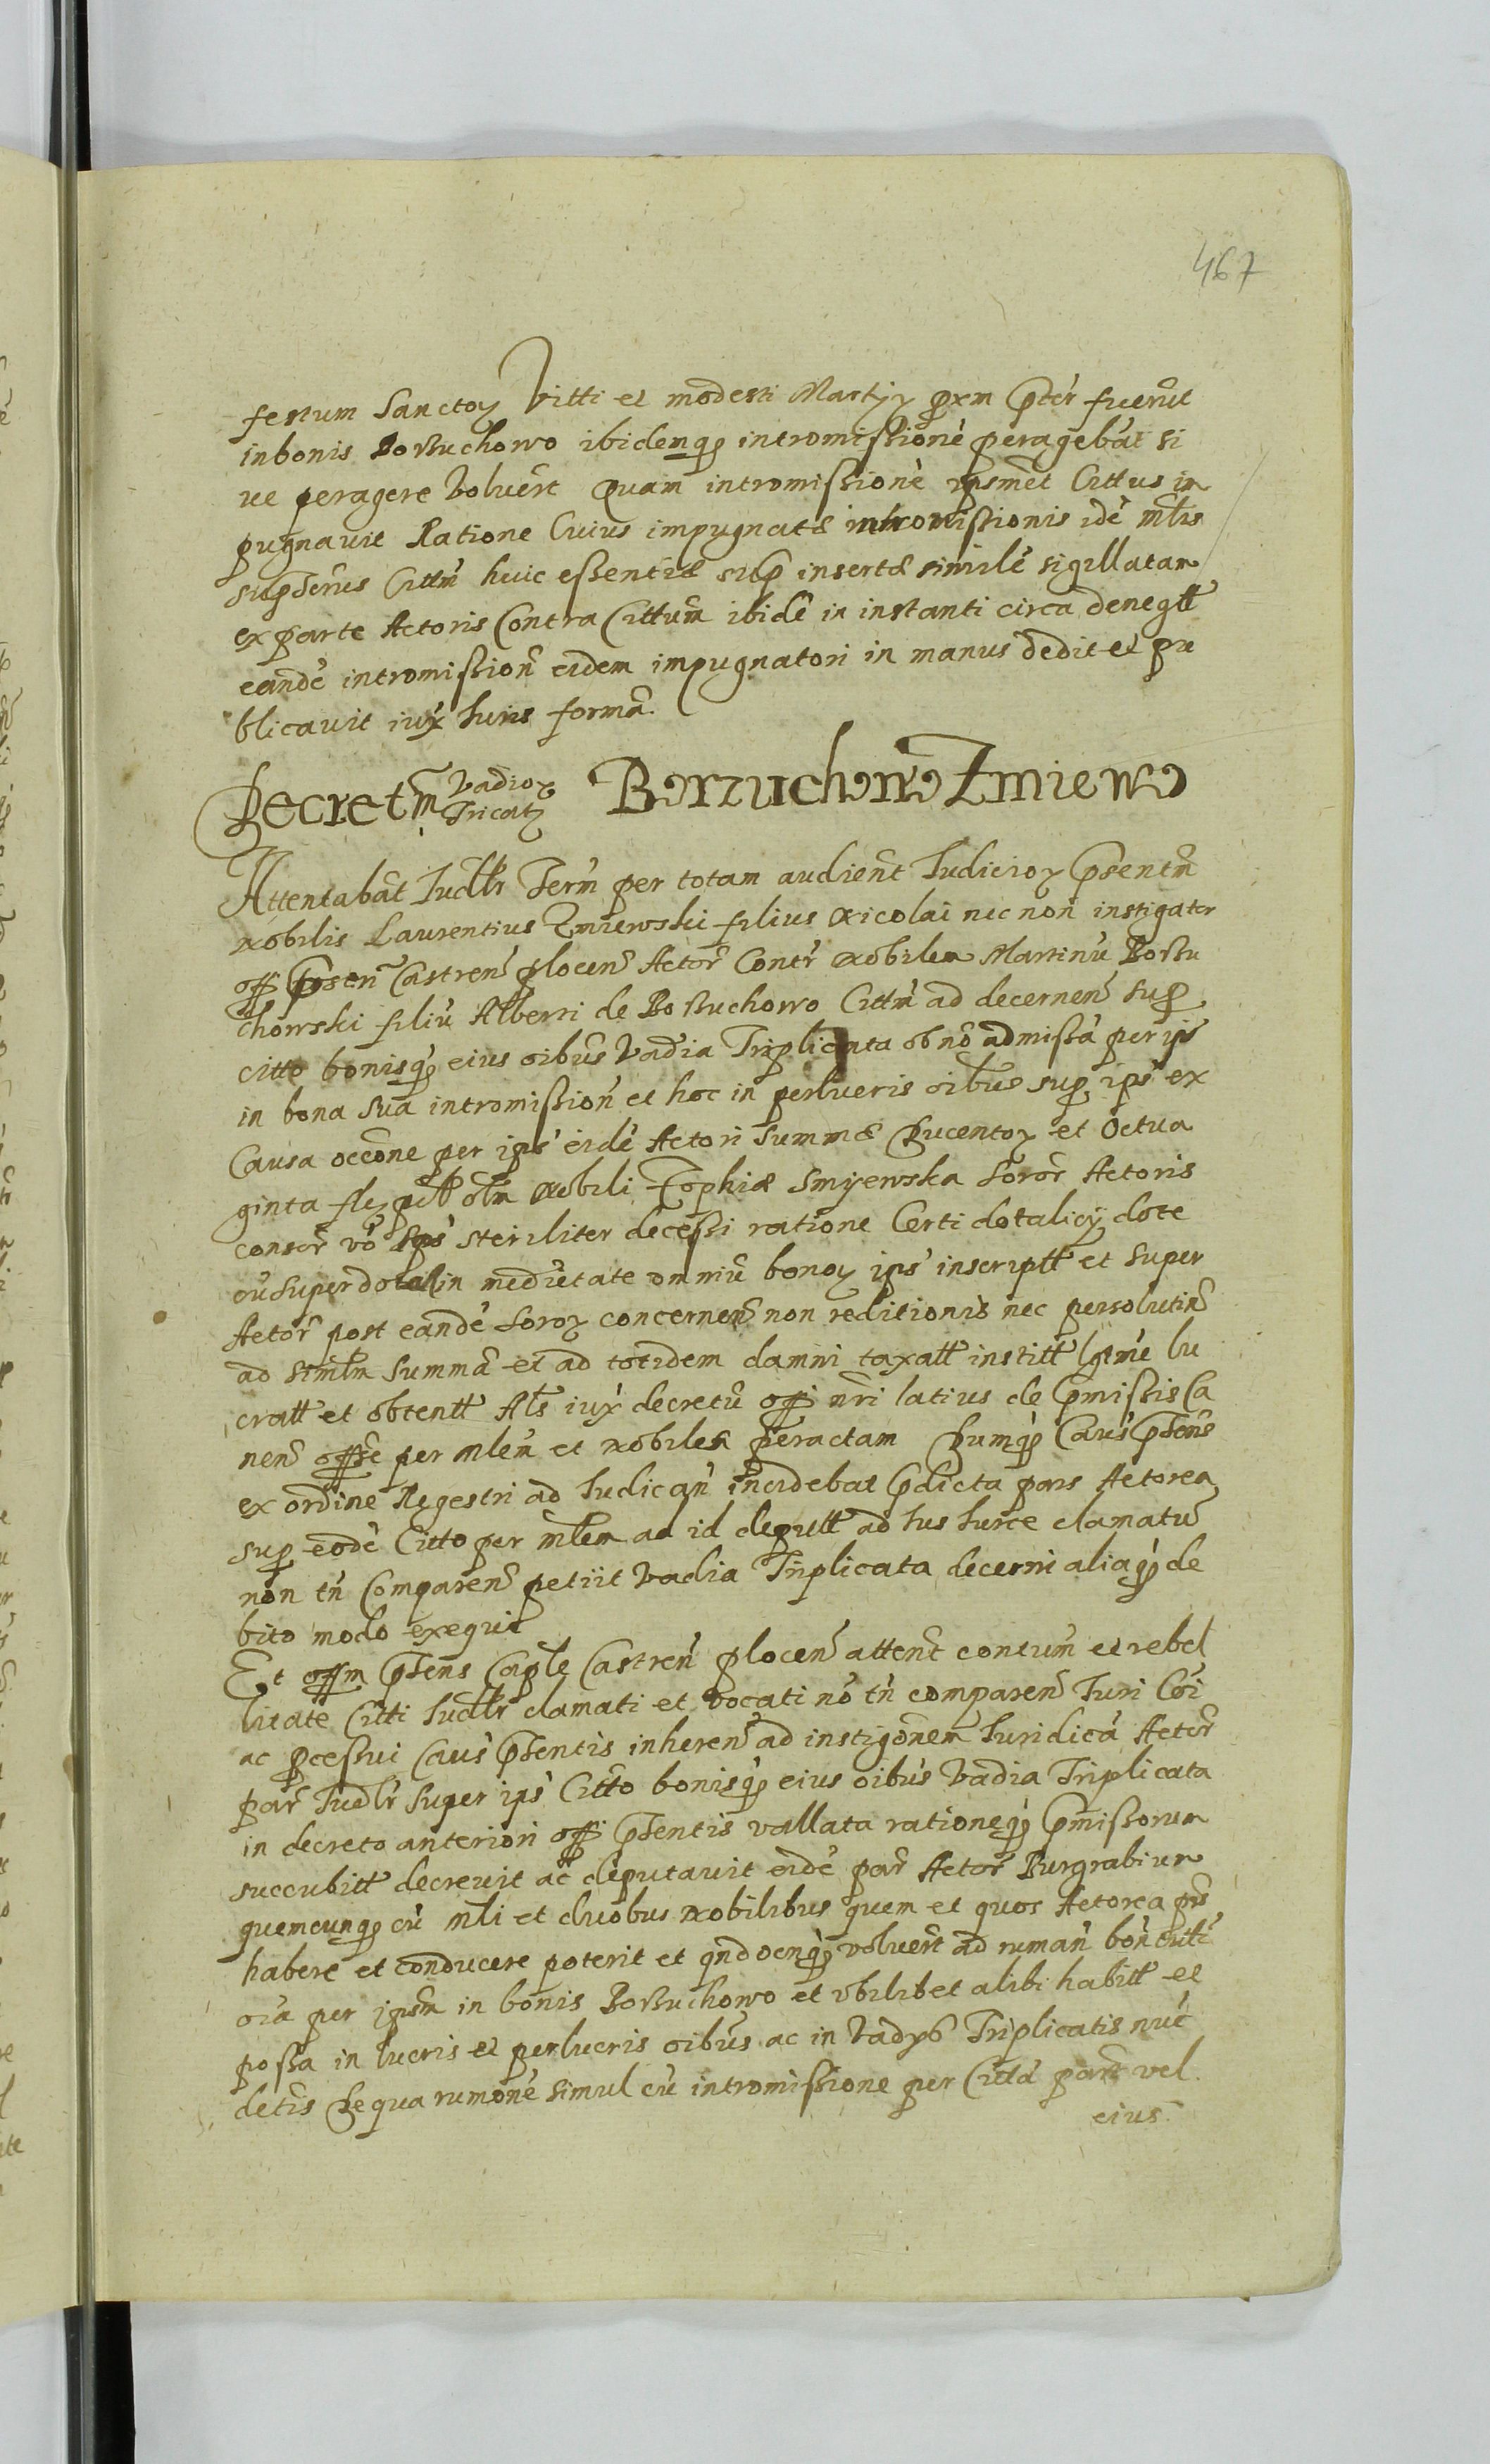 467
festum Sanctoꝝ Vitti et modesti Martyꝝ pxm pter fuerut
in bonis Borzuchowo ibidemq intromissione peragebat si
ue peragere voluert Quam intromissione ipsmet Cittus in
pugnavit Ratione Cuius impugnatæ intromissionis ide mlis
Citm huic essentiæ sup insertæ simile sigillatam
ex parte Actoris Contra Cittum ibide in instanti circa denegtt
eande intromission eidem impugnatori in manus dedit et pu
blicavit iux Iuris forma.
Decretm Vadioꝝ Tricatꝝ Borzuchowo Zmiewo
Attentabat Iudlr Term per totam audient Iudicioꝝ psentm
Nobilis Laurentius Zmiewski filius Nicolai nec non instigator
off psen Castren plocen Actor Contr Nobilem Martinu Borzu
chowski filiu Alberti de Borzuchowo Cittm ad decernen sup
citto bonisq eius oibus Vadia Triplicata ob no admissa per ips
in bona sua intromission et hoc in perlucris oibus sup ips ex
Causa occone per ips eide Actori Summæ Ducentoꝝ et Octua
ginta flꝝ pltt olm Nobili Zophiæ Smyewska Soror Actoris
consor vo ips steriliter decessi ratione Certi dotalicy dote
cu superdotal in medietate omniu bonoꝝ ips inscriptt et super
Actor post eande Soroꝝ concernen non reditionis nec persolutin
ad similm Summa et ad totidem damni taxatt institt lgme lu
cratt et obtentt Als iux decretu offi nri latius de pmissis Ca
nen offse per mlem et Nobiles peractam Dumq Caus psens
ex ordine Regestri ad Iudican incidebat pdicta pars Actorea
sup eode Citto per mlem ad id deputt ad Ius Iurce clamatu
non tn Comparen petiit Vadia Triplicata decerni aliaq de
bito modo exequi
Et offm psens Caple Castren plocen attent contum et rebel
litate Citti Iudlr clamati et vocati no tn comparen Iuri Coi
ac pcessui Caus psentis inheren ad instigonem Iuridica Actor
par Iudlr super ips Citto bonisq eius oibus Vadia Triplicata
in decreto anteriori offi psentis vallata rationeq pmissorum
succubitt decrevit ac deputavit eide par Actor Burgrabium
quemcunq cu mli et duobus Nobilibus quem et quos Actorea prs
habere et conducere poterit et qndocunq voluert ad ruman bon
oia per ipsm in bonis Borzuchowo et ubilibet alibi habitt et
possa in lucris et perlucris oibus ac in Vadys Triplicatis nuc
detis De qua rumone simul cu intromissione per Citta part vel
eius